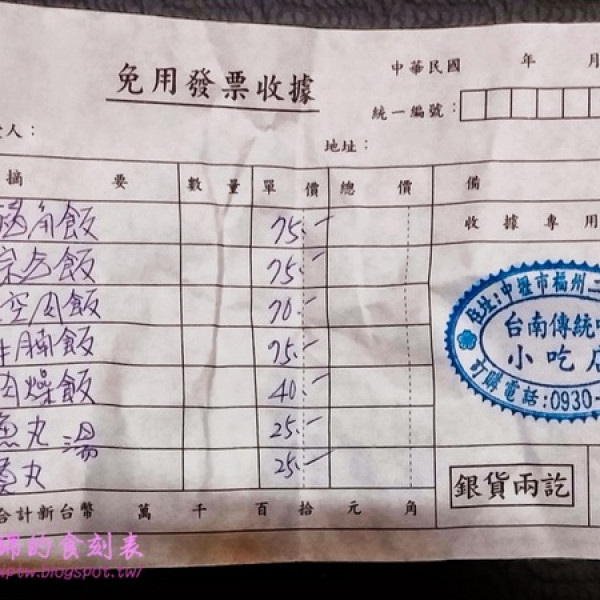 免用發票收據
中華民國 年 月
統一編號：
人：
地址：
摘 要 數量 單價 總價 備
收據專用
飯 75.-
飯 75.-
空肉飯 70.-
腩飯 75.-
肉燥飯 40.-
魚丸湯 25.-
丸 25.-
住址:中壢市福州二
台南傳統
小吃店
訂購電話:0930-
銀貨兩訖
合計新台幣 萬 千 百 拾 元 角
的食刻表
ptw.blogspot.tw/